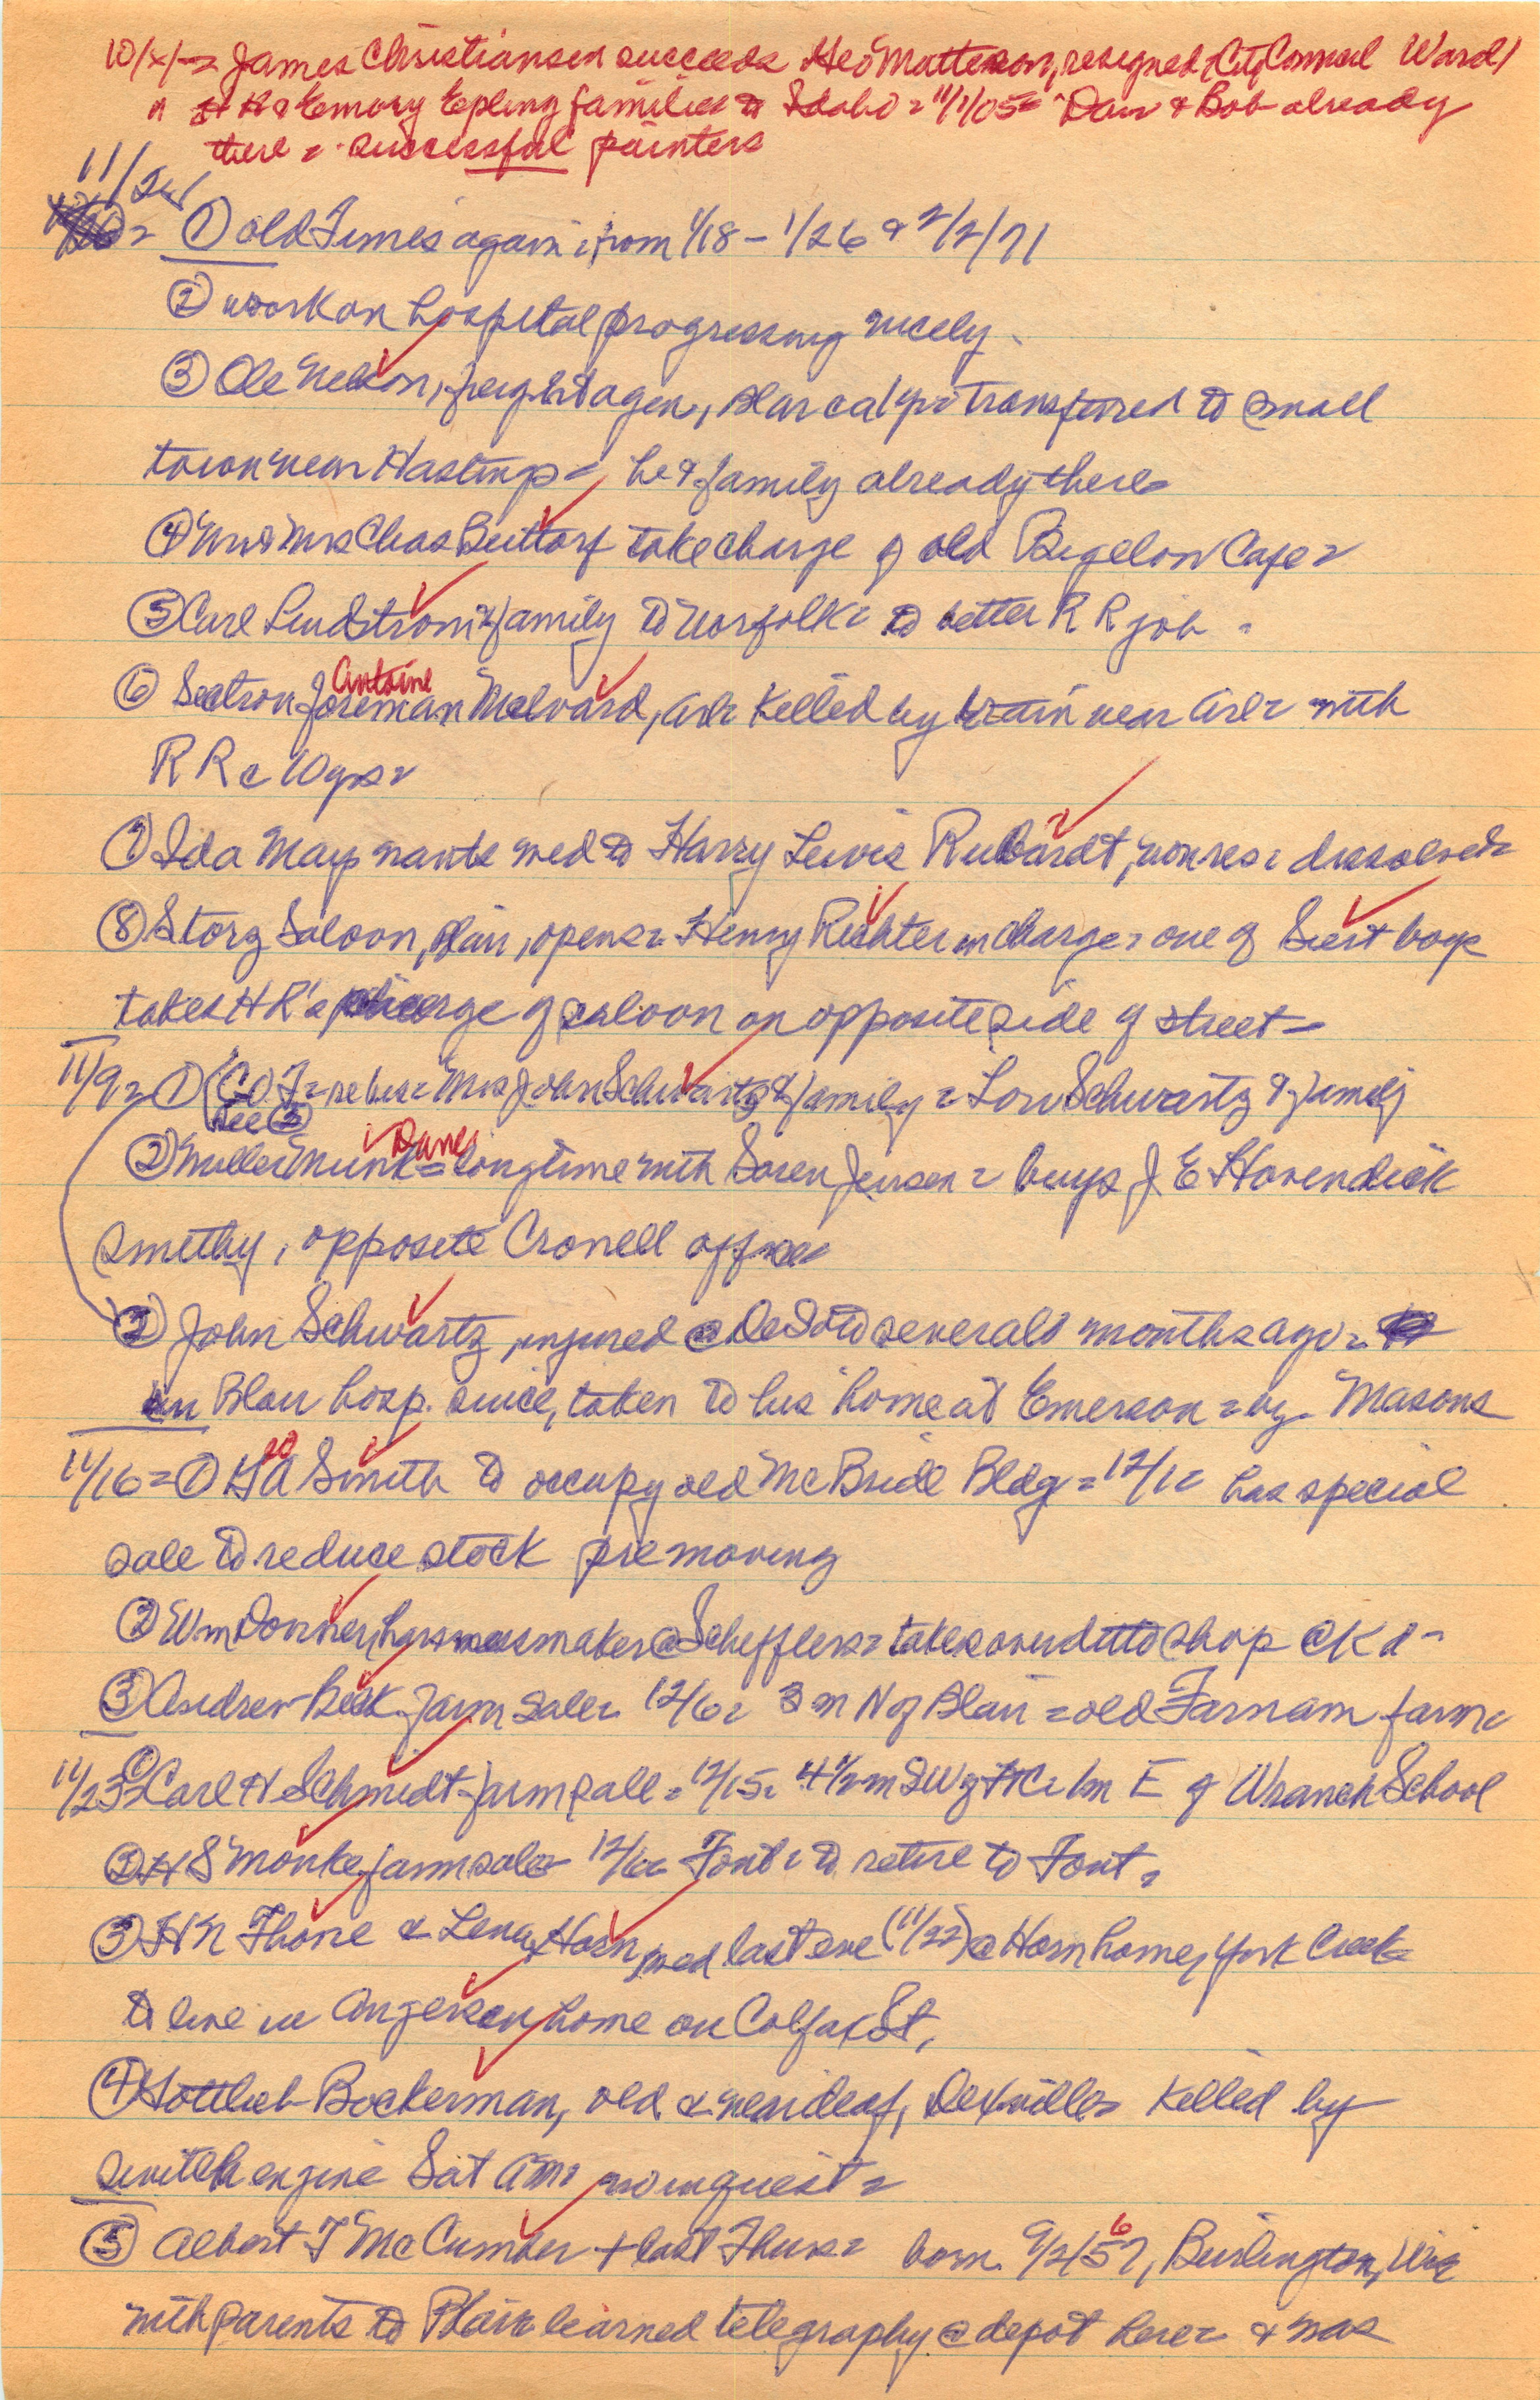 James Christiansen succeeds Geo Matteson, resigned, City Council Ward 1
Emory Epling families to Idaho = 11/1/05 = Dan & Bob already
there = successful painters
11/2
① old Times again = from 1/18 - 1/26 & 2/2/71
② work on hospital progressing nicely
③ Ole Nelson, freight agent, Blair = transferred to small
town near Hastings = he & family already there
④ Mr & Mrs Chas Beuttorf take charge of old Bigelow Cafe =
⑤ Carl Lundstrom & family to Norfolk = to better RR job =
Antoine
⑥ Section foreman Malvard, Arl = killed by train near Arl = with
RR c 10 yrs =
⑦ Ida May wed to Harry Lewis = dissolved =
⑧ Storz Saloon, Blair, opens = Henry Richter in charge = one of boys
takes HR's charge of saloon on opposite side of street =
11/9 = ① Mrs John Schwartz & family = Lon Schwartz & family
see ②
Dane
② Miller Munk = longtime with Soren Jensen = buys J E Hovendick
smithy, opposite Cronell office
② John Schwartz, injured @ DeSoto several months ago =
in Blair hosp. since, taken to his home at Emerson = by Masons
11/16 = ① Smith to occupy old McBride Bldg = 12/1 = has special
sale to reduce stock pre moving
② Wm harnessmaker @ Schefflers = takes over ditto shop @ Kd =
③ Andrew Beck farm sale = 12/6 = 3 m N of Blair = old Farnam farm =
11/23 = ① Carl H Schmidt farm sale = 12/15 = 4 1/2 m SW of = 1m E of Wranch School
② H S Monke farm sale = Font = to retire to Font =
③ H N Thone & Lena Horn, wed last eve (11/22) @ Horn home, York Creek =
to live in home on Colfax St,
④ Gottlieb Bockerman, old & near deaf, killed by
switch engine Sat AM = no inquest =
6
⑤ Albert T McCumber + last Thurs = born 9/2/57, Burlington, Wis
with parents to Blair = learned telegraphy @ depot here = & was